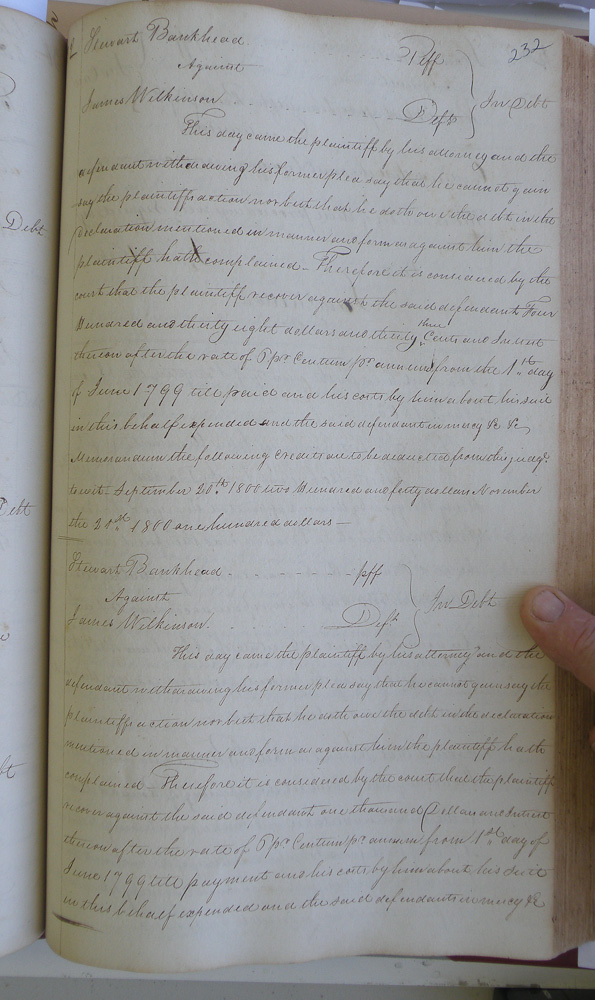 232
Stewart Bankhead Plff
Against
James Wilkinson Deft
In Debt
This day came the plaintiff by his attorney and the
defendant withdrawing his former plea say that he cannot gain
say the plaintiffs action nor but that he doth owe the debt in the
declaration mentioned in manner and form as against him the
plaintiff hath complained – Therefore it is considered by the
court that the plaintiff recover against the said defendant Four
Hundred and thirty eight dollars and thirty three Cents and Interest
thereon after the rate of Pr Centum pr annum from the 1st day
of June 1799 till paid and his costs by him about his suit
in this behalf expended and the said defendant in mercy &c &c
Memorandum the following credits are to be deducted from the judgt
towit September 20th 1800 two Hundred and fifty dollars November
the 20th 1800 one hundred dollars —
Stewart Bankhead plff
Against
James Wilkinson Deft
In Debt
This day came the plaintiff by his attorney and the
defendant withdrawing his former plea say that he cannot gain say the
plaintiffs action nor but that he doth owe the debt in the declaration
mentioned in manner and form as against him the plaintiff hath
complained – Therefore it is considered by the court that the plaintiff
recover against the said defendant one thousand Dollars and Interest
thereon after the rate of Pr Centum pr annum from 1st day of
June 1799 till payment and his costs by him about his suit
in this behalf expended and the said defendant in mercy &c
Debt
Debt